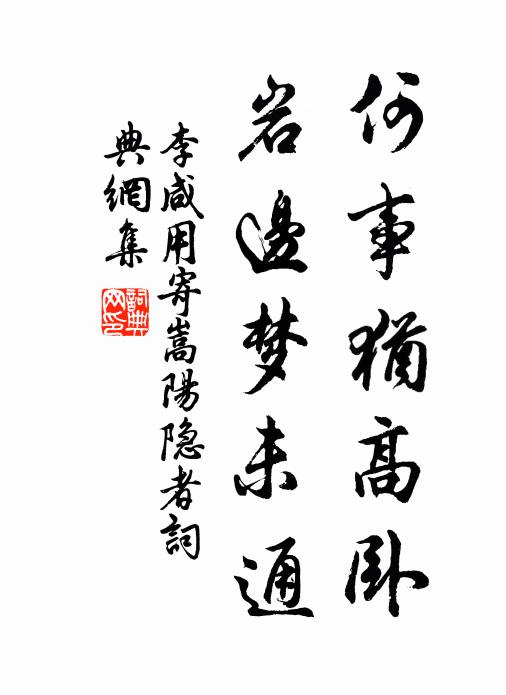 何事猶高卧
岩邊梦未通
李咸用寄嵩陽隐者詞
典網集
詞典網印